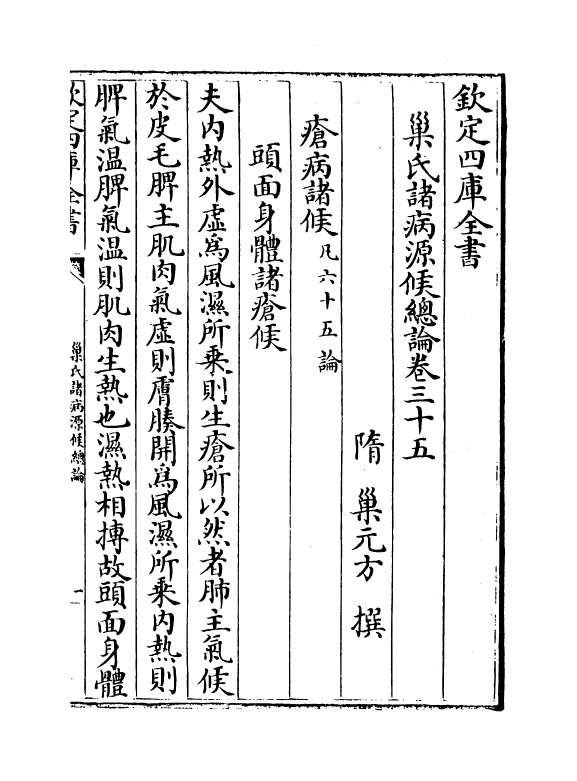 欽定四庫全書
巢氏諸病源候總論卷三十五
隋 巢元方 撰
瘡病諸候凡六十五論
頭面身體諸瘡候
夫内熱外虛為風濕所乘則生瘡所以然者肺主氣候
於皮毛脾主肌肉氣虛則膚腠開為風濕所乘内熱則
脾氣温脾氣温則肌肉生熱也濕熱相搏故頭面身體
欽定四庫全書
巢氏諸病源候總論
一